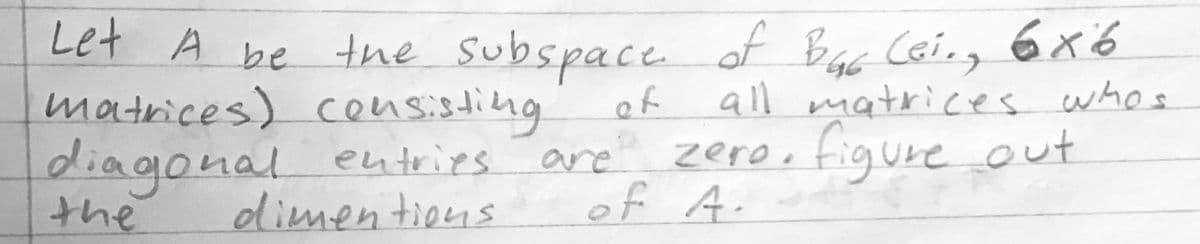 Let A be the subspace of B₆₆ (ei., 6×6
matrices) consisting of all matrices whos
diagonal entries are zero. figure out
the dimentions of A.